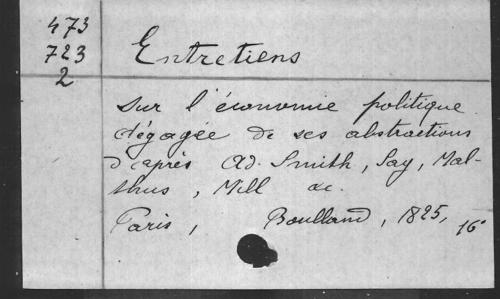 473
723
2
Entretiens
sur l'économie politique
dégagée de ses abstractions
d'après Ad. Smith, Say, Mal-
thus, Mill &c.
Paris, Boulland, 1825, 16°